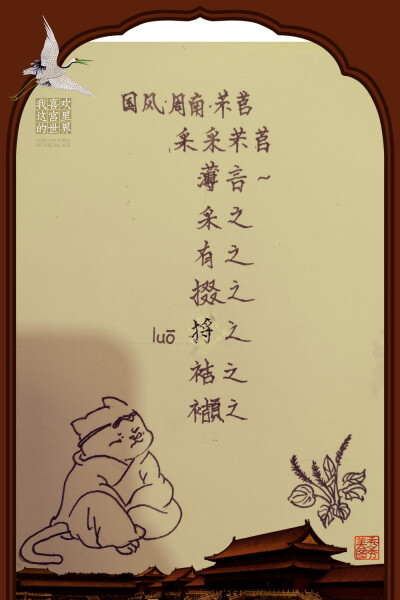 我喜欢
这宫里
的世界
国风·周南·芣苢
采采芣苢
薄言~
采之
有之
掇之
luō 捋之
袺之
襭之
美秀
图秀